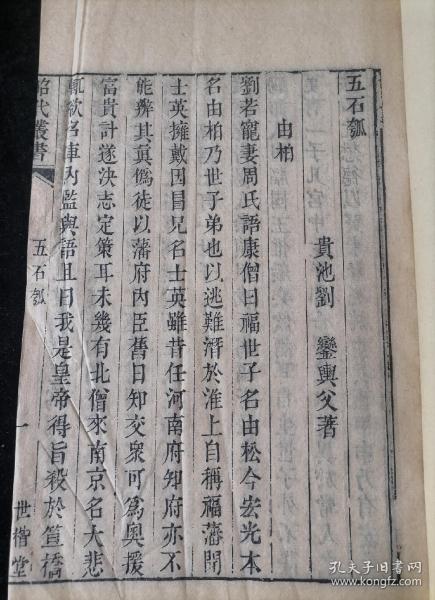 五石瓠
貴池劉 鑾輿父著
由柏
劉若寵妻周氏語康僧曰福世子名由松今宏光本
名由柏乃世子弟也以逃難潛於淮上自稱福藩閒
士英擁戴因冒兄名士英雖昔任河南府知府亦不
能辨其眞僞徒以藩府內臣舊日知交衆可爲奧援
富貴計遂決志定策耳未幾有北僧來南京名大悲
輒欲召車內監與語且曰我是皇帝得旨殺於笪橋
昭代叢書
五石瓠
一
世楷堂
孔夫子旧书网
www.kongfz.com